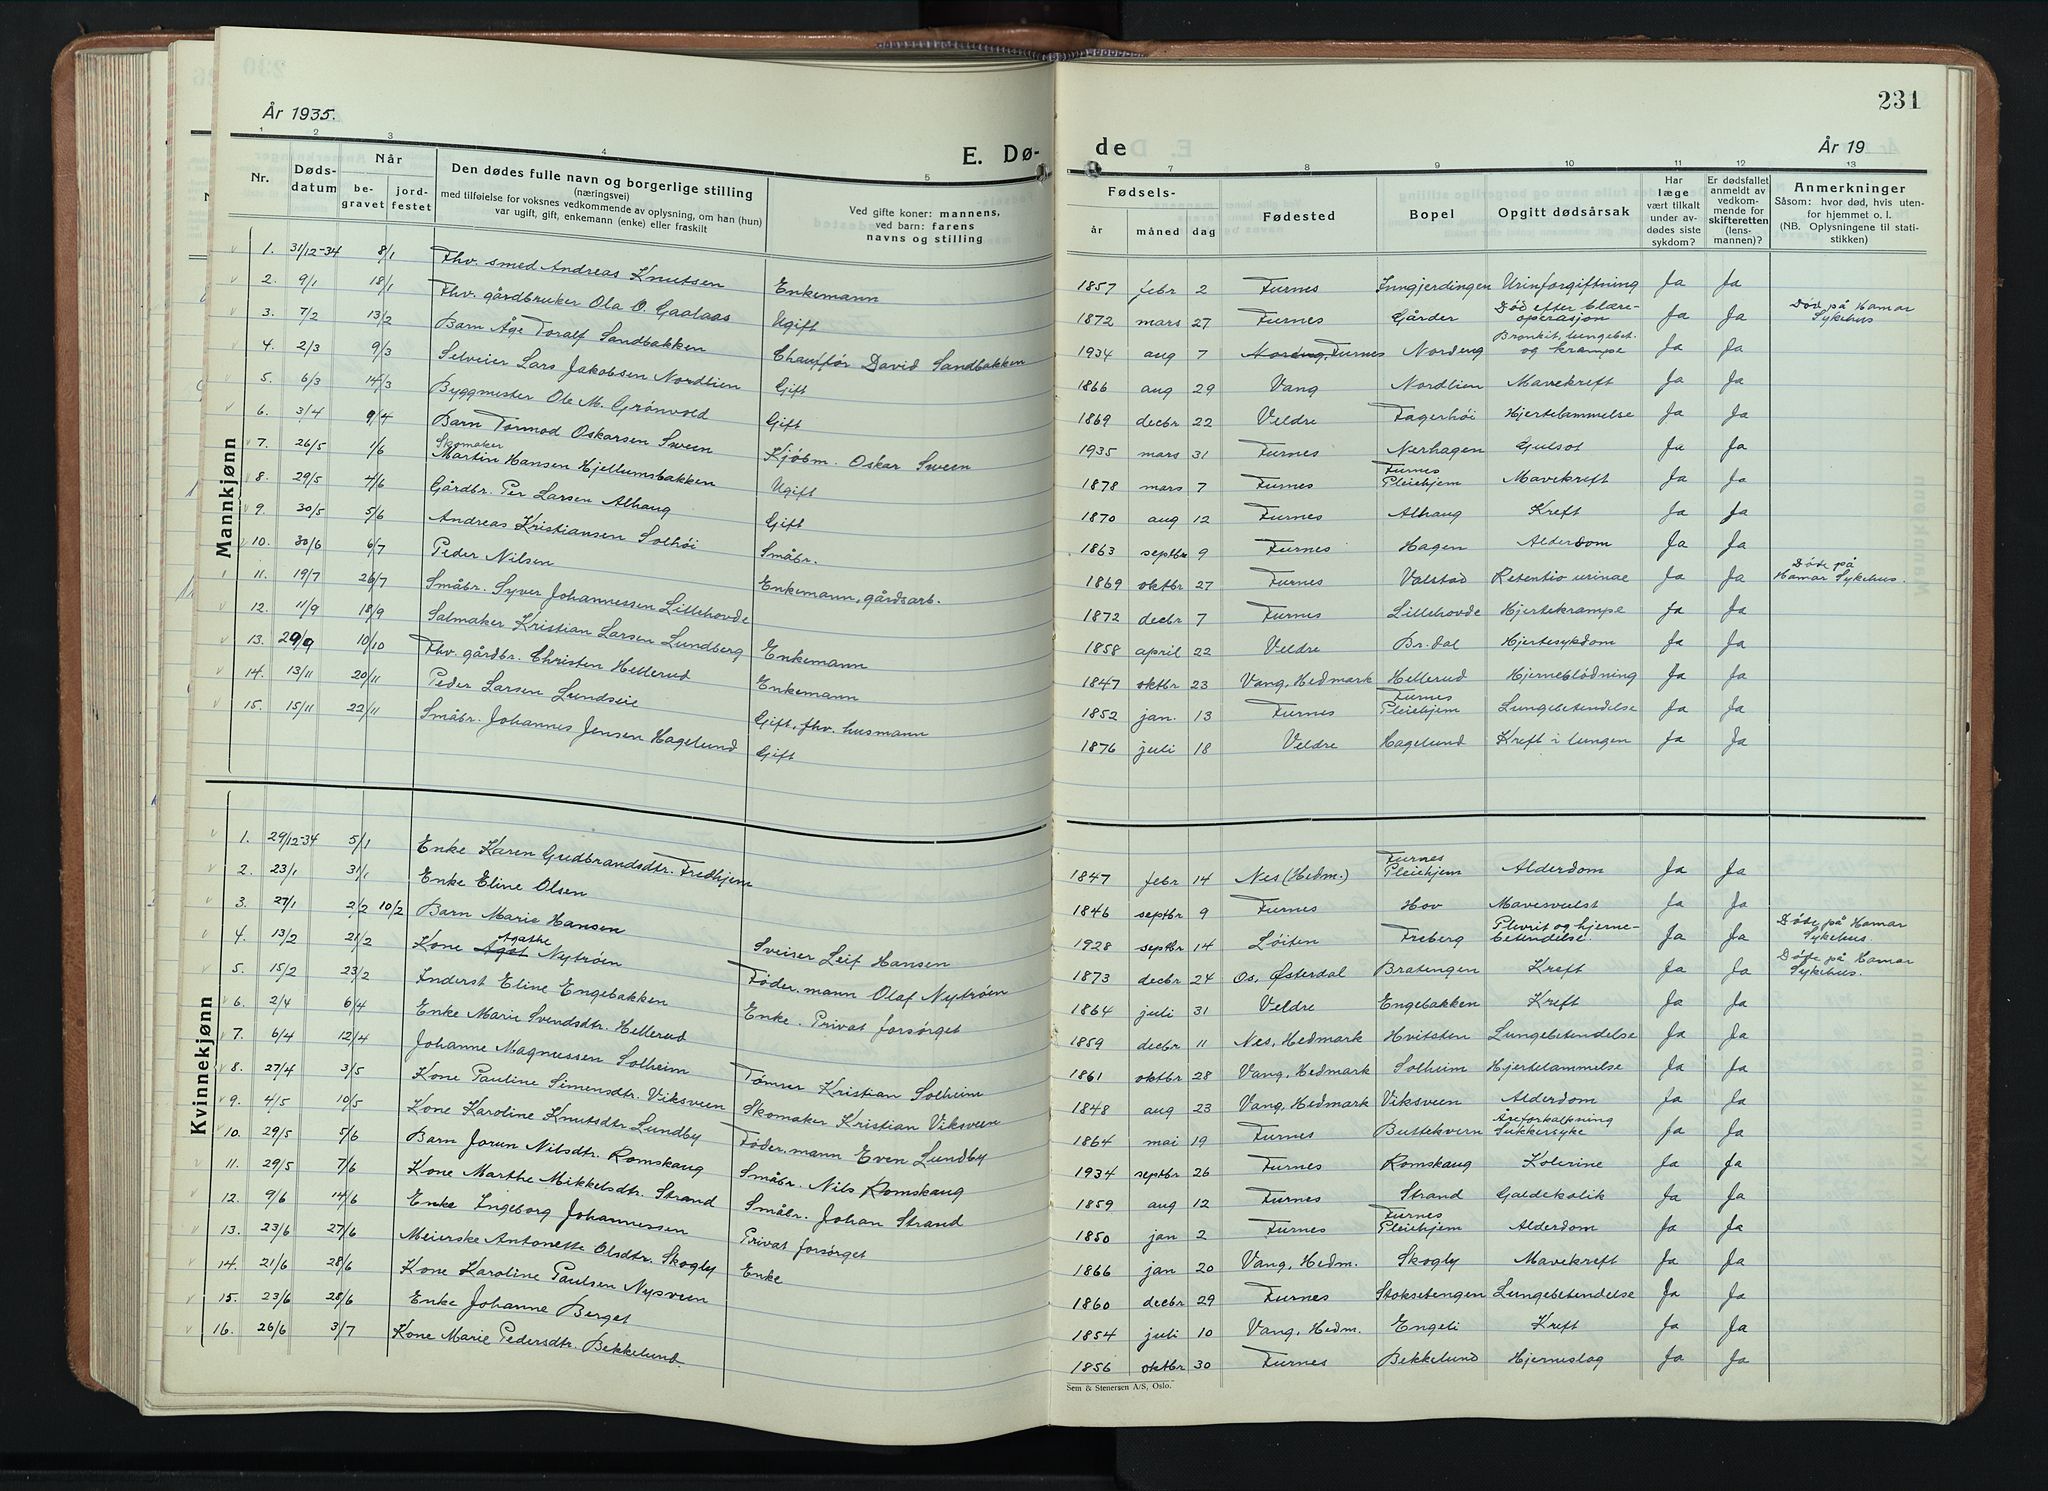 231
År 1935.
År 19
E. Dø- de
1 2 3 4 5 7 8 9 10 11 12 13
Nr. | Døds-datum | Når be-gravet | jord-festet | Den dødes fulle navn og borgerlige stilling (næringsvei) med tilføielse for voksnes vedkommende av oplysning, om han (hun) var ugift, gift, enkemann (enke) eller fraskilt | Ved gifte koner: mannens, ved barn: farens navns og stilling | Fødsels- år | måned | dag | Fødested | Bopel | Opgitt dødsårsak | Har læge vært tilkalt under av-dødes siste sykdom? | Er dødsfallet anmeldt av vedkom-mende for skifteretten (lens-mannen)? | Anmerkninger Såsom: hvor død, hvis uten-for hjemmet o. l. (NB. Oplysningene til stati-stikken)
Mannkjønn
1. 31/12-34 8/1 Fhv. smed Andreas Knutsen Enkemann 1857 febr 2 Furnes Inngjerdingen Urinforgiftning Ja Ja
2. 9/1 18/1 Fhv. gårdbruker Ola O. Gaalaas Ugift 1872 mars 27 Furnes Gårder Død efter blære-operasjon Ja Ja Døde på Hamar Sykehus
3. 7/2 13/2 Barn Åge Toralf Sandbakken Chauffør David Sandbakken 1934 aug 7 Nordeng, Furnes Nordeng Bronkit, lungebet. og krampe Ja Ja
4. 2/3 9/3 Selveier Lars Jakobsen Nordlien Gift 1866 aug 29 Vang Nordlien Mavekreft Ja Ja
5. 6/3 14/3 Byggmester Ole M. Grønvold Gift 1869 decbr 22 Veldre Fagerhøi Hjertelammelse Ja Ja
6. 3/4 9/4 Barn Tormod Oskarsen Sveen Kjøbm. Oskar Sveen 1935 mars 31 Furnes Nerhagen Gulsot Ja Ja
7. 26/5 1/6 Skomaker Martin Hansen Hjellumsbakken Ugift 1878 mars 7 Furnes Furnes Pleiehjem Mavekreft Ja Ja
8. 29/5 4/6 Gårdbr. Per Larsen Alhaug Gift 1870 aug 12 Furnes Alhaug Kreft Ja Ja
9. 30/5 5/6 Andreas Kristiansen Solhøi Småbr. 1863 septbr 9 Furnes Hagen Alderdom Ja Ja
10. 30/6 6/7 Peder Nilsen Enkemann, gårdsarb. 1869 oktbr 27 Furnes Valstad Retentio urinae Ja Ja Døde på Hamar Sykehus.
11. 19/7 26/7 Småbr. Syver Johannessen Lillehovde 1872 decbr 7 Furnes Lillehovde Hjertekrampe Ja Ja
12. 11/9 18/9 Salmaker Kristian Larsen Lundberg Enkemann 1858 april 22 Veldre Br.dal Hjertesykdom Ja Ja
13. 29/9 10/10 Fhv. gårdbr. Christen Hellerud Enkemann 1847 oktbr 23 Vang, Hedmark Hellerud Hjerneblødning Ja Ja
14. 13/11 20/11 Peder Larsen Lundseie Gift, fhv. husmann 1852 jan. 13 Furnes Furnes Pleiehjem Lungebetendelse Ja Ja
15. 15/11 22/11 Småbr. Johannes Jensen Hagelund Gift 1876 juli 18 Veldre Hagelund Kreft i lungen Ja Ja
Kvinnekjønn
1. 29/12-34 5/1 Enke Karen Gudbrandsdtr. Fredhjem 1847 febr 14 Nes (Hedm.) Furnes Pleiehjem Alderdom Ja Ja
2. 23/1 31/1 Enke Eline Olsen 1846 septbr 9 Furnes Hov Mavesvulst Ja Ja
3. 27/1 2/2 10/2 Barn Marie Hansen Sveiser Leif Hansen 1928 septbr 14 Løiten Freberg Plevrit og hjerne-betendelse. Ja Ja Døde på Hamar Sykehus.
4. 13/2 21/2 Kone Agot Agathe Nytrøen Føder.mann Olaf Nytrøen 1873 decbr 24 Os, Østerdal Bratengen Kreft Ja Ja Døde på Hamar Sykehus.
5. 15/2 23/2 Inderst Eline Engebakken Enke. Privat forsørget 1864 juli 31 Veldre Engebakken Kreft Ja Ja
6. 2/4 6/4 Enke Marie Svendsdtr. Hellerud 1859 decbr 11 Nes, Hedmark Hvitsten Lungebetendelse Ja Ja
7. 6/4 12/4 Johanne Magnussen Solheim Tømrer Kristian Solheim 1861 oktbr 28 Vang, Hedmark Solheim Hjertelammelse Ja Ja
8. 27/4 3/5 Kone Pauline Simensdtr. Viksveen Skomaker Kristian Viksveen 1848 aug 23 Vang, Hedmark Viksveen Alderdom Ja Ja
9. 4/5 10/5 Kone Karoline Knutsdtr Lundby Føder.mann Even Lundby 1864 mai 19 Furnes Buttekvern Åreforkalkning Sukkersyke Ja Ja
10. 29/5 5/6 Barn Jorun Nilsdtr. Romskaug Småbr. Nils Romskaug 1934 septbr 26 Furnes Romskaug Kolerine Ja Ja
11. 29/5 7/6 Kone Marthe Mikkelsdtr. Strand Småbr. Johan Strand 1859 aug 12 Furnes Strand Galdekolik Ja Ja
12. 9/6 14/6 Enke Ingeborg Johannessen Privat forsørget 1850 jan 2 Furnes Furnes Pleiehjem Alderdom Ja Ja
13. 23/6 27/6 Meierske Antonette Olsdtr. Skogly Enke 1866 jan 20 Vang, Hedm. Skogly Mavekreft Ja Ja
14. 21/6 28/6 Kone Karoline Paulsen Nysveen 1860 decbr 29 Furnes Stoksetengen Lungebetendelse Ja Ja
15. 23/6 28/6 Enke Johanne Berget 1854 juli 10 Vang, Hedm. Engeli Kreft Ja Ja
16. 26/6 3/7 Kone Marie Pedersdtr. Bekkelund. 1856 oktbr 30 Furnes Bekkelund Hjerneslag Ja Ja
Sem & Stenersen A/S, Oslo.